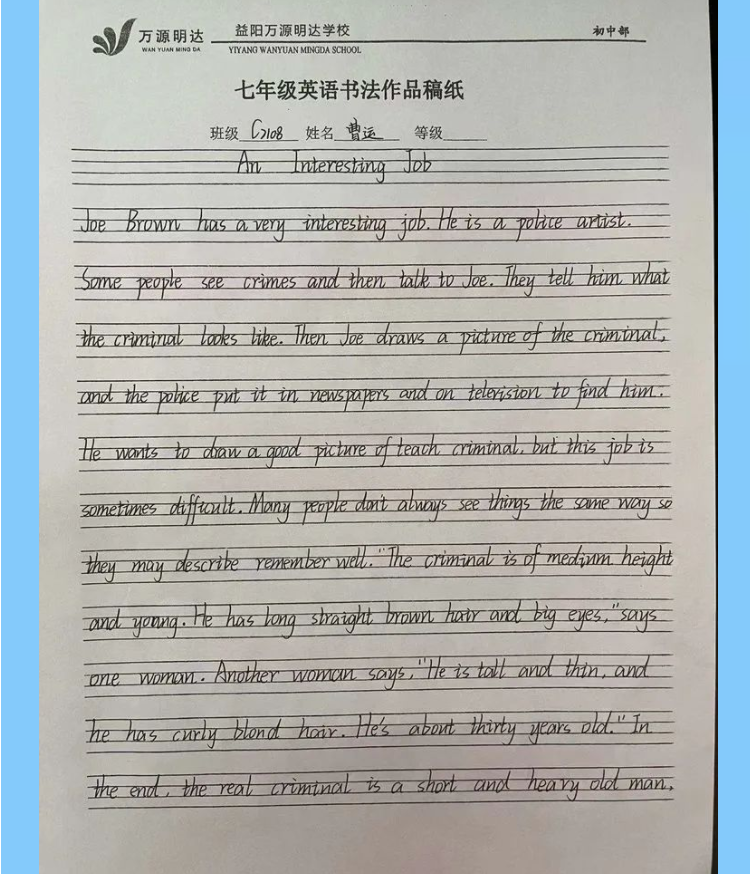 万源明达
WAN YUAN MING DA
益阳万源明达学校
YIYANG WANYUAN MINGDA SCHOOL
初中部
七年级英语书法作品稿纸
班级 C2108 姓名 曹运 等级
An Interesting Job
Joe Brown has a very interesting job. He is a police artist.
Some people see crimes and then talk to Joe. They tell him what
the criminal looks like. Then Joe draws a picture of the criminal,
and the police put it in newspapers and on television to find him.
He wants to draw a good picture of teach criminal, but this job is
sometimes difficult. Many people don't always see things the same way so
they may describe remember well. "The criminal is of medium height
and young. He has long straight brown hair and big eyes," says
one woman. Another woman says, "He is tall and thin, and
he has curly blond hair. He's about thirty years old." In
the end, the real criminal is a short and heavy old man,